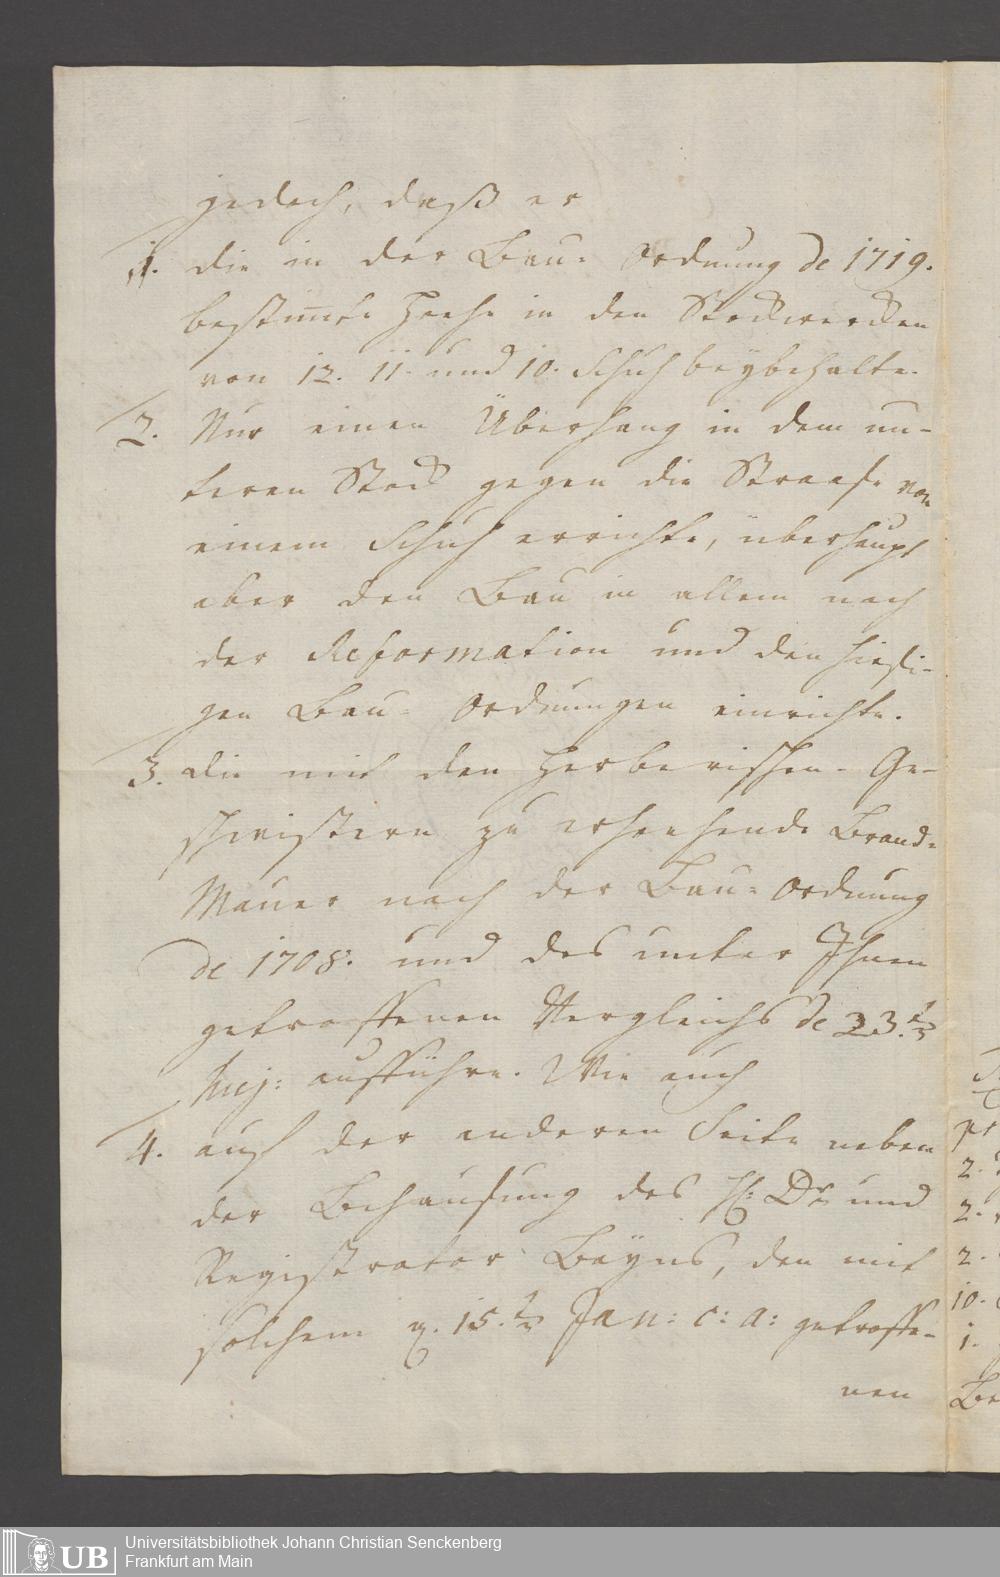 jedoch, daß er
1. die in der Bau- Ordnung de 1719.
bestim̅te Hoehe in den Stockwercken
von 12. 11. und 10. Schuh beÿbehalte.
2. Nur einen Überhang in dem un-
teren Stock gegen die Straase von
einem Schuh errichte, überhaupt
aber den Bau in allem nach
der Reformation und den hiesi-
gen Bau- Ordnungen einrichte.
3. die mit den Herberischen- Ge-
schwistern zu erhoehende Brand-
Mauer nach der Bau- Ordnung
de 1708. und des unter Ihnen
getroffenen Vergleichs de 23.ten
huj: ausführe. Wie auch
4. auf der anderen Seite neben
der Behausung des H: Dr und
Registrator Baÿns, den mit
solchem d. 15.ten Jan: c: a: getroffe-
nen
2.
2.
2.
10.
1.
Universitätsbibliothek Johann Christian Senckenberg
Frankfurt am Main
UB